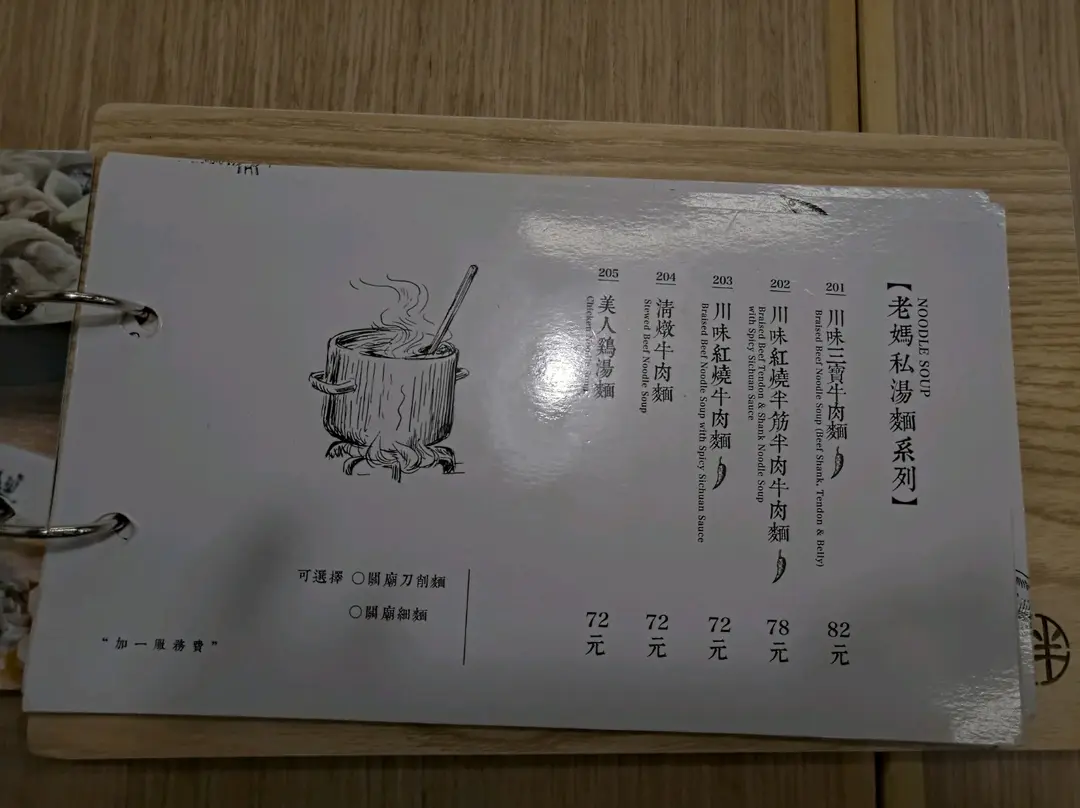 【老媽私湯麵系列】
NOODLE SOUP
201
川味三寶牛肉麵
Braised Beef Noodle Soup (Beef Shank, Tendon & Belly)
82元
202
川味紅燒半筋半肉牛肉麵
Braised Beef Tendon & Shank Noodle Soup
with Spicy Sichuan Sauce
78元
203
川味紅燒牛肉麵
Braised Beef Noodle Soup with Spicy Sichuan Sauce
72元
204
清燉牛肉麵
Stewed Beef Noodle Soup
72元
205
美人鷄湯麵
Chicken
72元
可選擇 ○關廟刀削麵
○關廟細麵
"加一服務費"